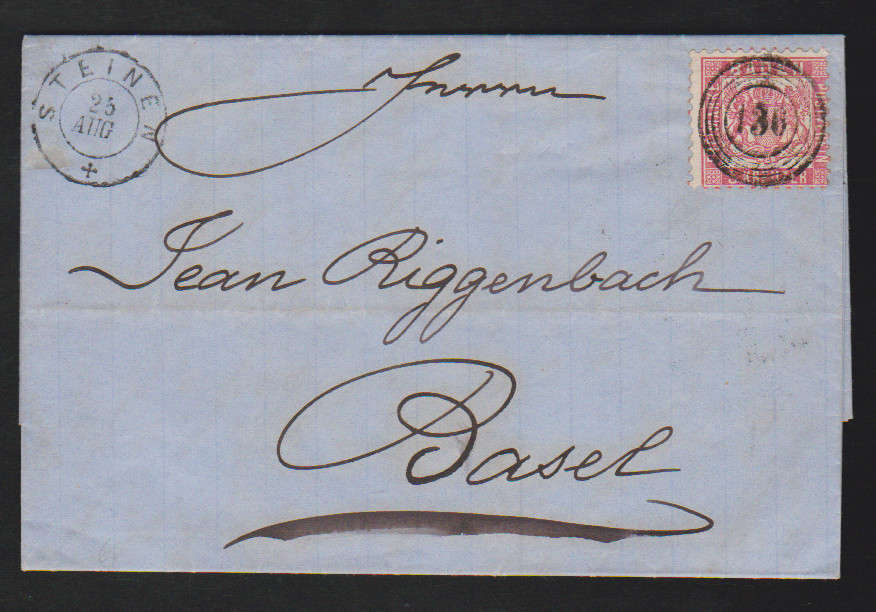 STEINEN
25
AUG
BADEN
136
Herrn
Jean Riggenbach
Basel